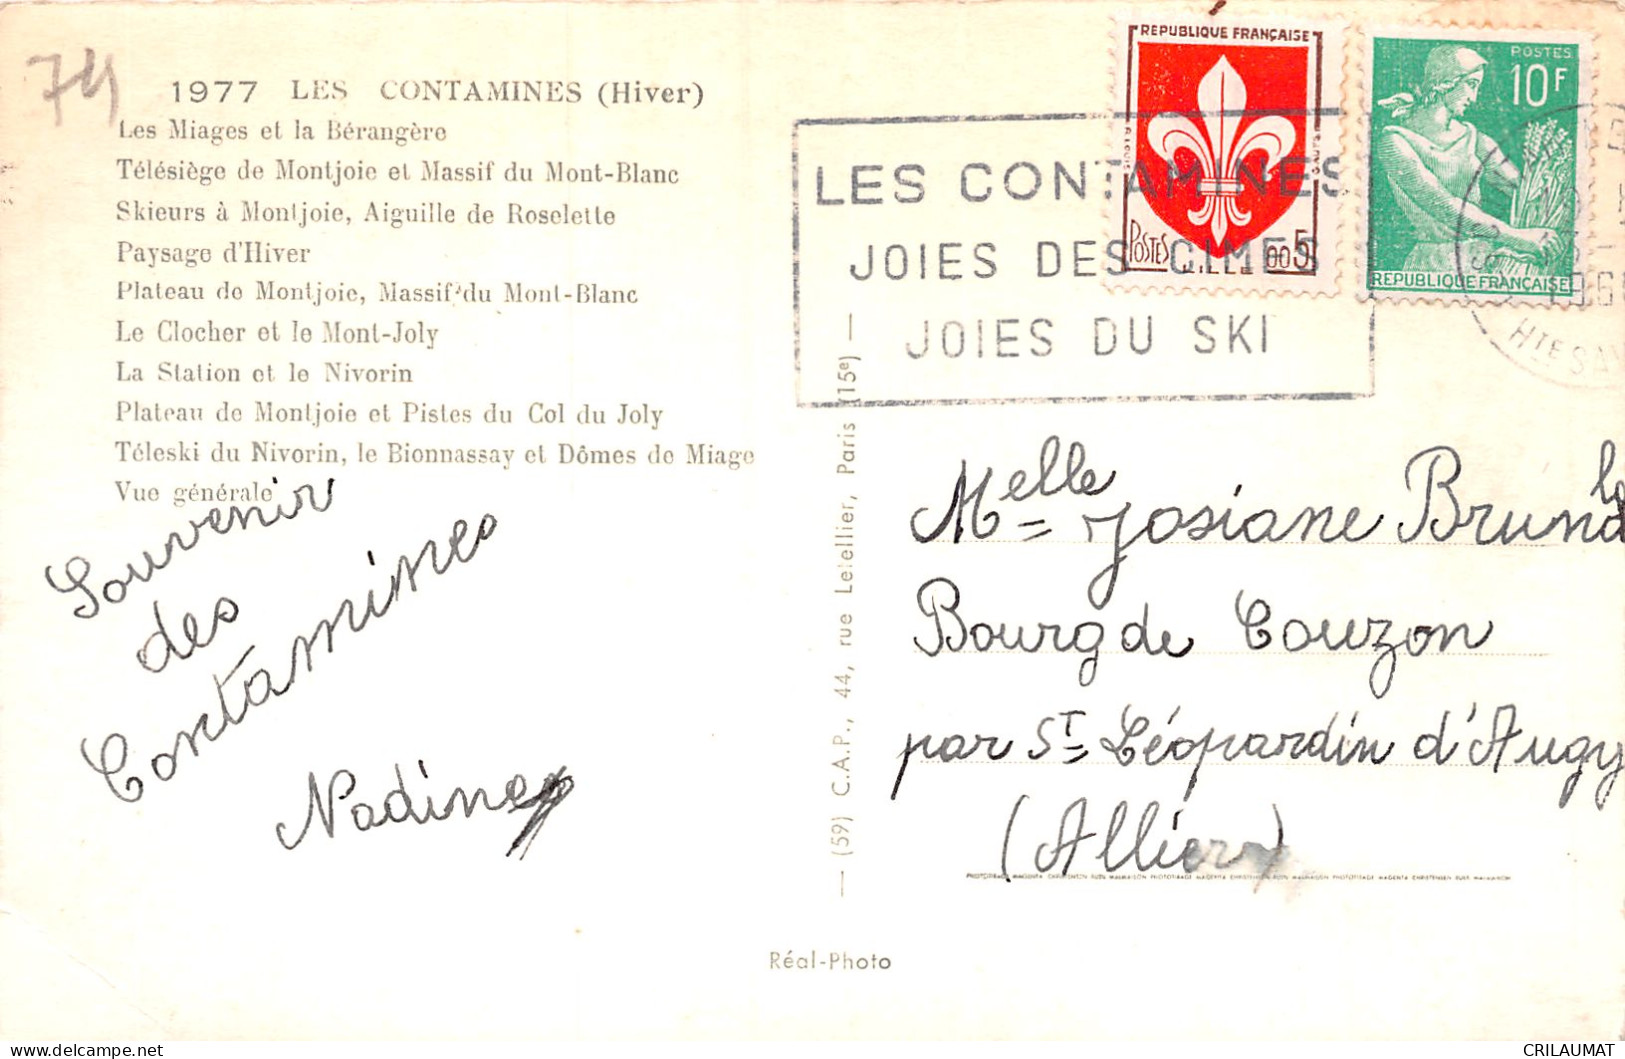 74
1977 LES CONTAMINES (Hiver)
Les Miages et la Bérangère
Télésiège de Montjoie et Massif du Mont-Blanc
Skieurs à Montjoie, Aiguille de Roselette
Paysage d'Hiver
Plateau de Montjoie, Massif du Mont-Blanc
Le Clocher et le Mont-Joly
La Station et le Nivorin
Plateau de Montjoie et Pistes du Col du Joly
Téleski du Nivorin, le Bionnassay et Dômes de Miage
Vue générale
Souvenir
des
Contamines
Nadine
— (59) C.A.P., 44, rue Letellier, Paris (15e) —
Réal-Photo
REPUBLIQUE FRANÇAISE
POSTES 005
POSTES
10F
REPUBLIQUE FRANÇAISE
LES CONTAMINES
JOIES DES CIMES
JOIES DU SKI
HTE SAV
Melle Josiane Brun
Bourg de Couzon
par St Léopardin d'Augy
(Allier)
CRILAUMAT